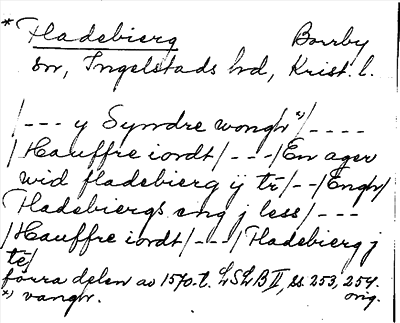 * Fladebierg Borrby
sn, Ingelstads hd, Krist. l.
/--- y Syndre wongh x)/----
/Hauffre iordt/---/En ager
wid fladebierg ij tē/--/Engh/
Fladebiergs eng j less/---
/Hauffre iordt/---/Fladebierg j
tē/
förra delen av 1570-t. LSLB II, ss. 253, 254.
x) vangr. orig.